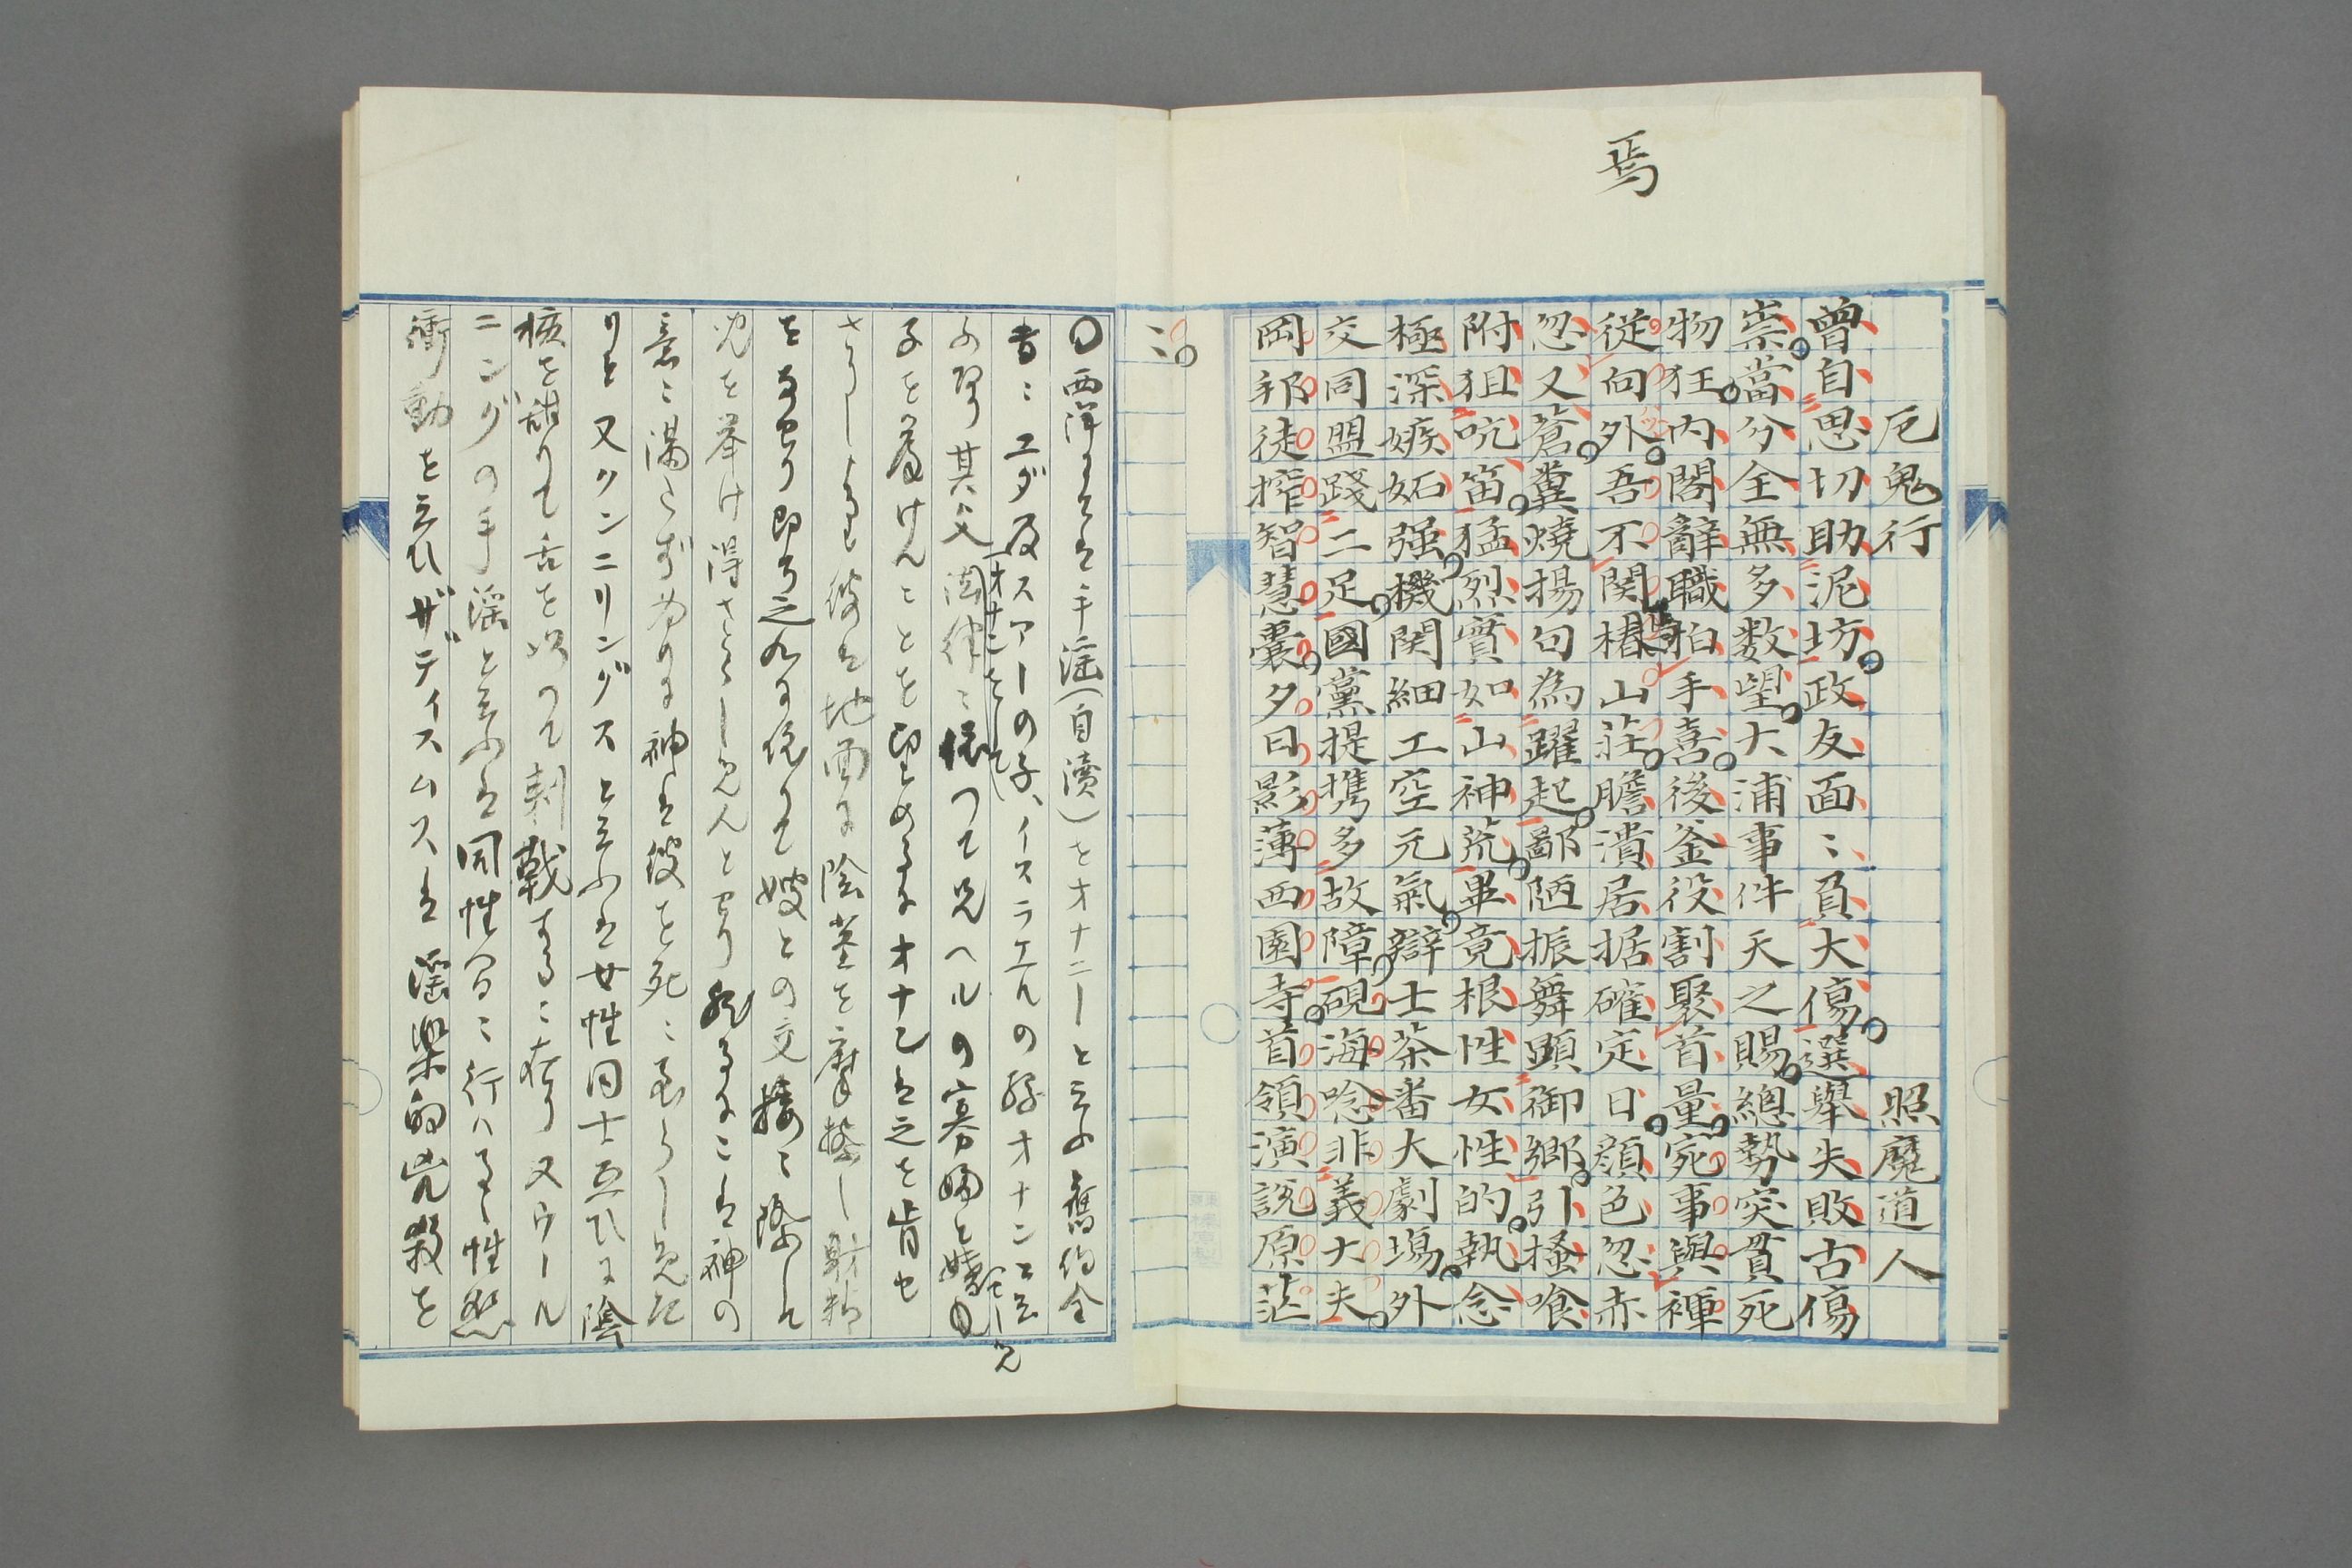 焉
厄鬼行 照魔道人
曾自思切助泥坊政友面〻負大傷選舉失敗古傷
祟當分全無多数望大浦事件天之賜總勢突貫死
物狂内閣辭職拍手喜後釜役割聚首量宛事與褌
従向外吾不関椿山荘膽潰居据確定日顔色忽赤
忽又蒼糞焼揚句為躍起鄙陋振舞顕御郷引掻喰
附狙吭笛猛烈實如山神荒畢竟根性女性的執念
極深嫉妬强機関細工空元氣辯士茶番大劇場外
交同盟踐二足國黨提携多故障硯海唸非義大夫
岡邪徒搾智慧嚢夕日影薄西園寺首領演説原茫
〻
西洋 手淫(自瀆)をオナニーと云ふ舊約全
書ニユダ及スアーの子、イスラエルの孫オナンと云
ふ 其父 律ニ依つて兄ヘルの寡婦と婚
オナニをして
子を擧けんことを オナンは之を肯セ
さりし 彼は地面に陰莖を摩擦し射精
を 即ち之れに依りて嫂との交接ニ際し
児を挙け得さらしめんと こは神の
意ニ満たず 神は彼を死ニ至らしめた
りと又クンニリングスと云ふは女性同士互ひに陰
核を舐りて舌を以つて刺戟するニ在り又ウール
ニングの手淫と云ふは同性間ニ行ハるゝ性慾
衝動を云ひザディスムスは淫樂的兇殺を